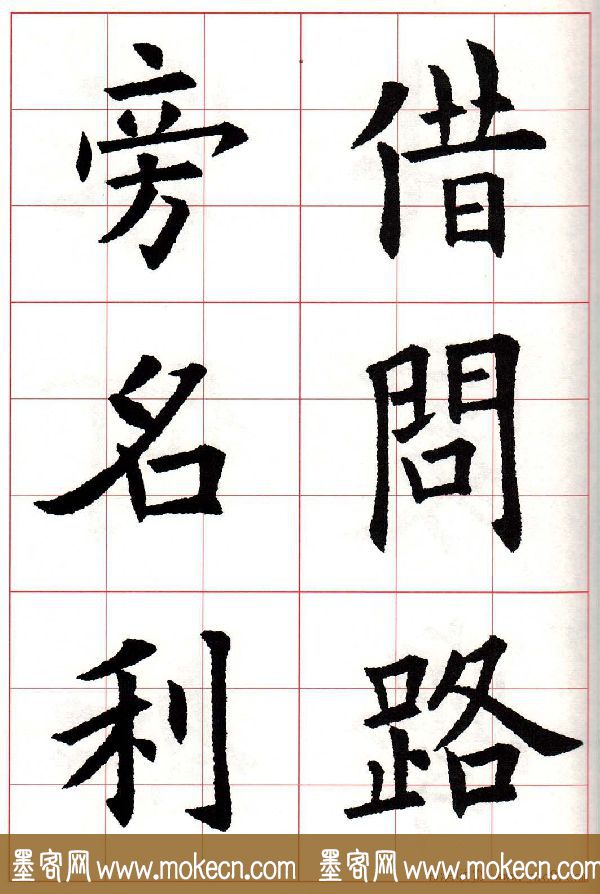 借問路
旁名利
墨客网 www.mokecn.com 墨客网 www.mokecn.com